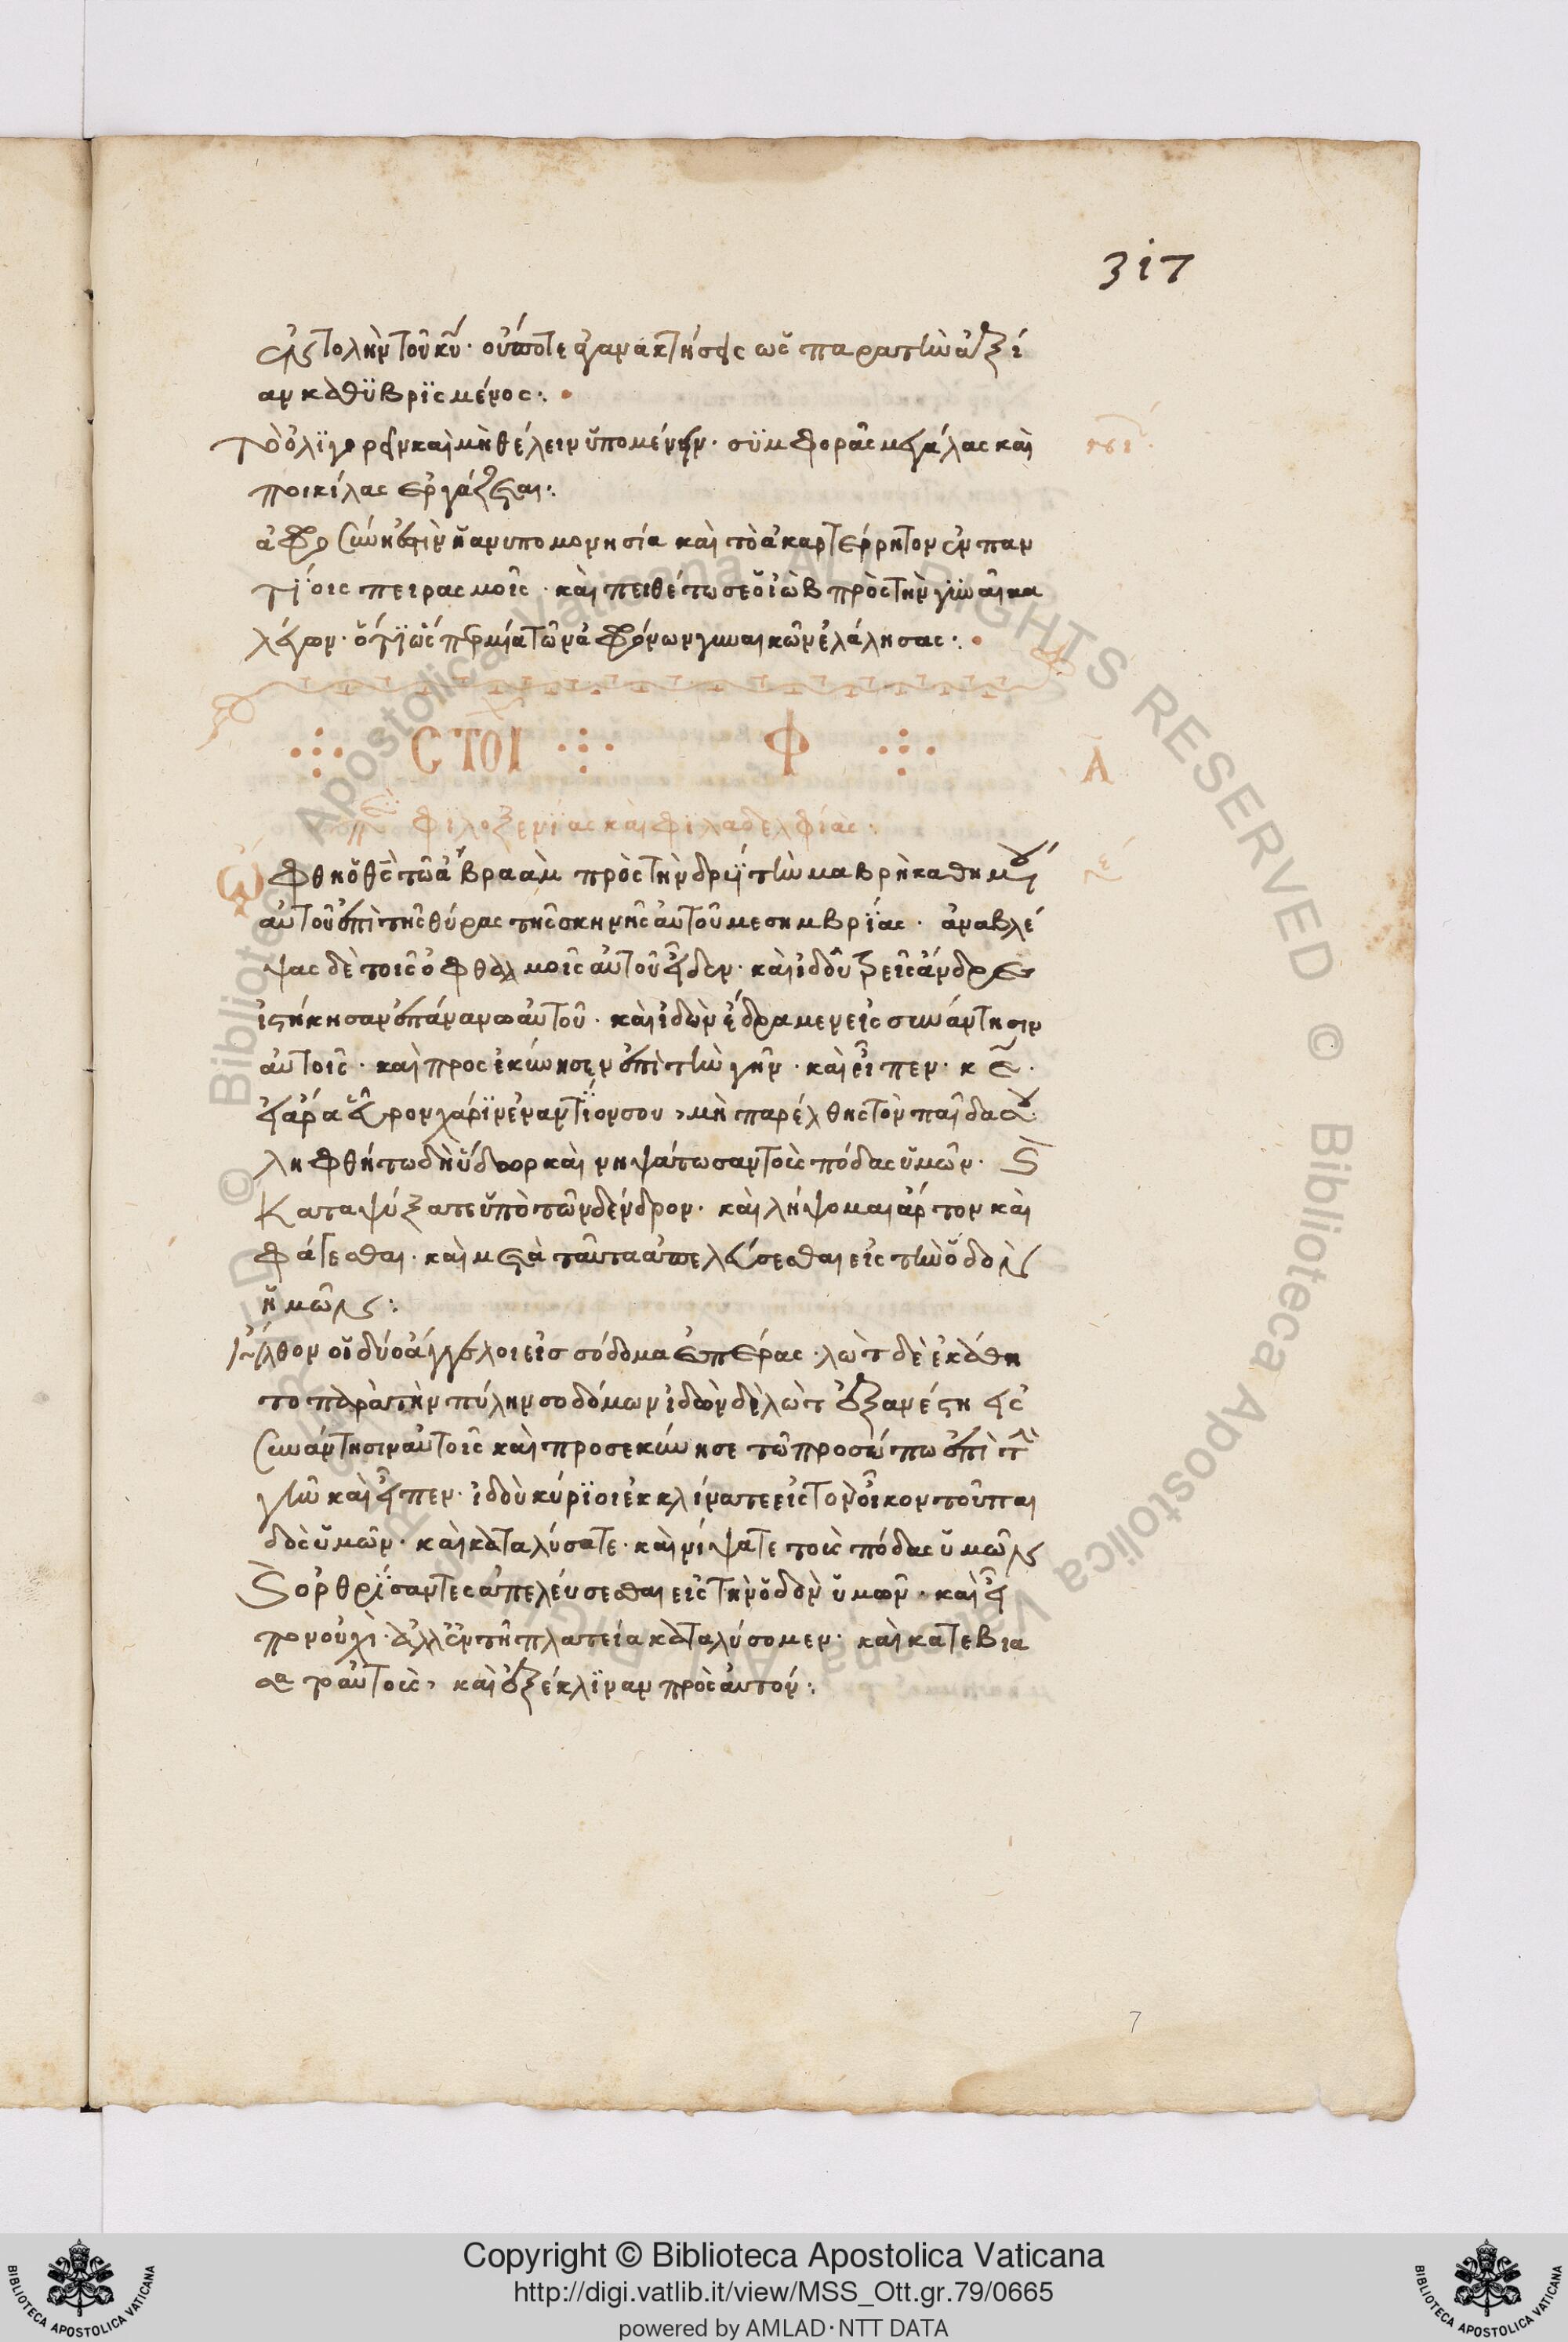 317
ἐντολὴν τοῦ κυ. οὔποτε ἀγανακτήσεις ὡς παρὰ τὴν ἀξί
αν καθϋβρϊσμένος:.
Τὸ ὀλϊγωρεῖν καὶ μὴ θέλειν ὑπομένειν. σϋμφορὰς μεγάλας καὶ
ποικίλας ἐργάζεται:.
ἀφροσύνη ἐστὶν ἡ ἀνυπομονησία καὶ τὸ ἀκαρτέρρητον ἐν παν
τΐοις πειρασμοῖς. καὶ πειθέτω σε ὁ ἰὼβ πρὸς τὴν γυναῖκα
λέγων. ὅτϊ ὥσπερ μία τῶν ἀφρόνων γυναικῶν ἐλάλησας:.
СΤΟΙ Φ Α
πε φϊλοξενΐας καὶ φϊλαδελφίας.
Ὤφθη ὁ θς τῶ ἀβραὰμ πρὸς τὴν δρυῒ τὴν μαβρῆ καθημένου
αὐτοῦ ἐπὶ τῆς θύρας τῆς σκηνῆς αὐτοῦ μεσημβρΐας. ἀναβλέ
ψας δὲ τοῖς ὀφθαλμοῖς αὐτοῦ εἶδεν. καὶ ἰδοὺ τρεῖς ἄνδρες
ἱστήκησαν ἐπάνανω αὐτοῦ. καὶ ἰδὼν ἔδραμεν εἰς συνάντησιν
αὐτοῖς. καὶ προσεκύνησεν ἐπὶ τὴν γῆν. καὶ εἶπεν. κε.
εἰ ἄρα εὗρον χάρϊν ἐναντΐον σου, μὴ παρέλθης τὸν παῖδα σου.
ληφθήτω δὴ ὕδωρ καὶ νηψάτωσαν τοὺς πόδας ὑμῶν. Ϗ
καταψύξατε ὑπὸ τῶν δένδρον. καὶ λήψομαι ἄρτον καὶ
φάγεσθαι. καὶ μετὰ ταῦτα ἀπελεύσεσθαι εἰς τὴν ὁδὸν
ἡμῶν:.
Ἦλθον οἱ δύο ἄγγελοι εἰς σόδομα ἑσπέρας. λὼτ δὲ ἐκάθη
το παρὰ τὴν πύλην σοδόμων ἰδὼν δὲ λὼτ ἐξανέστη εἰς
συνάντησιν αὐτοῖς καὶ προσεκύνησε τῶ προσώπω ἐπὶ τὴν
γῆν καὶ εἶπεν. ἰδοὺ κύρϊοι ἐκκλίνατε εἰς τὸν οἶκον τοῦ παι
δὸς ὑμῶν. καὶ καταλύσατε. καὶ νίψατε τοὺς πόδας ὑμῶν
Ϗ ὀρθρΐσαντες ἀπελεύσεσθαι εἰς τὴν ὁδὸν ὑμῶν. καὶ εἶ
πον οὐχὶ. ἀλλ' ἐν τῆ πλατεία καταλύσομεν. καὶ κατεβια
σατο αὐτοὺς, καὶ ἐξέκλϊναν πρὸς αὐτόν:.
7
Copyright © Biblioteca Apostolica Vaticana
http://digi.vatlib.it/view/MSS_Ott.gr.79/0665
powered by AMLAD·NTT DATA